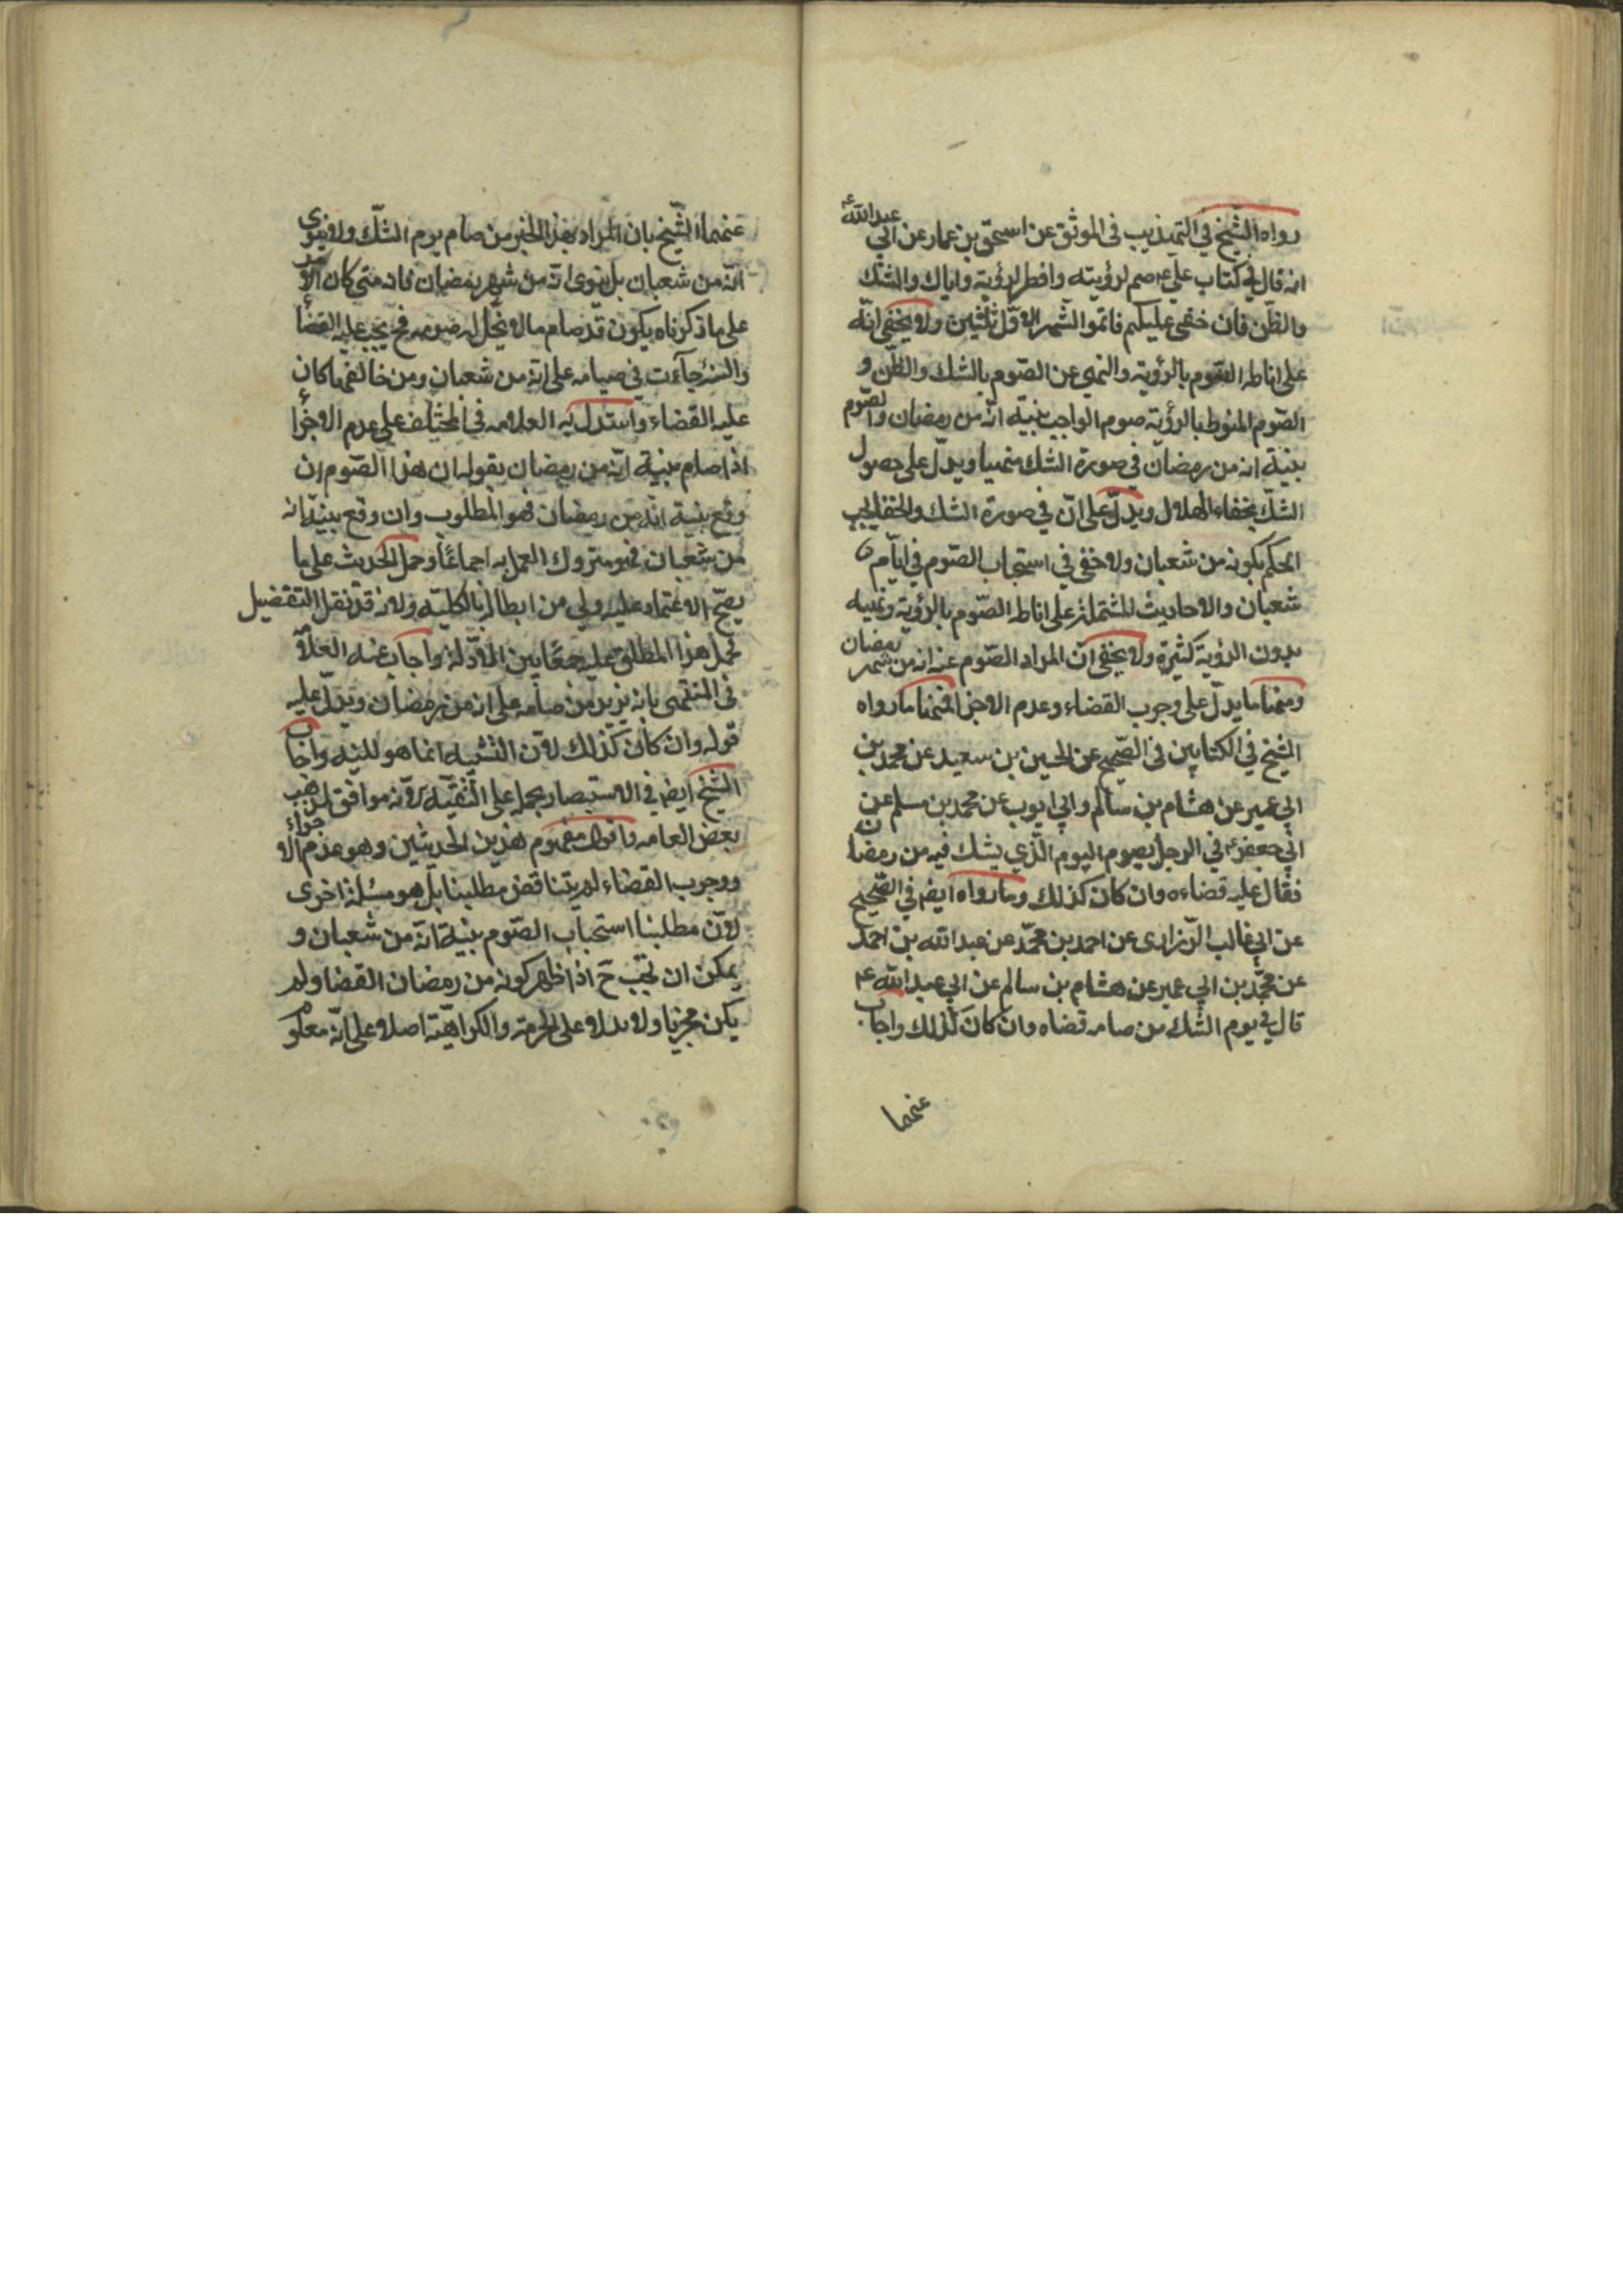 رواه الشّيخ في التهذيب في الموثق عن اسحق بن عمار عن ابي عبدالله ع
انه قال في كتاب علي ع صم لرؤيته وافطر لرؤيته واياك والشك
والظّن فان خفى عليكم فاتموا الشّهر الاوّل ثلثين ولا يخفى انّه
على اناطه الصّوم بالرؤيته والنهي عن الصّوم بالشك والظّن و
الصّوم المنوط بالرؤية صوم الواجب بنيّة انّه من رمضان والصّوم
بنيّة انه من رمضان في صورة الشك منهيا ويدلّ على حصول
الشكّ بخفاء الهلال ويدلّ على انّ في صورة الشك والخفا يجب
الحكم بكونه من شعبان ولا خفى في استحباب الصّوم في ايّام
شعبان والاحاديث المشتملة على اناطه الصّوم بالرؤية ونهيه
بدون الرؤية كثيرة ولا يخفى انّ المراد الصّوم عنه انه من شهر رمضان
ومنها ما يدلّ على وجوب القضاء وعدم الاجزا فمنها ما رواه
الشيخ في الكتابين في الصّحيح عن الحسين بن سعيد عن محمد بن
ابي عمير عن هشام بن سالم وابي ايوب عن محمد بن مسلم عن
ابي جعفر ع في الرجل يصوم اليوم الّذي يشك فيه من رمضان
فقال عليه قضاءه وان كان كذلك وما رواه ايضا في الصّحيح
عن ابي غالب الزراری عن احمد بن محمّد عن عبدالله بن احمد
عن محمّد بن ابي عمير عن هشام بن سالم عن ابي عبدالله ع
قال في يوم الشّك من صامه قضاه وان كان كذلك واجاب
عنهما
عنهما الشّيخ بان المراد بهذا الخبر من صام يوم الشّك ولا ينوى
انّه من شعبان بل ينوى انّه من شهر رمضان فانه متى كان الامر
على ما ذكرناه يكون قد صام مالا يحلّ له صومه فح يجب عليه القضاء
والسنة جآءت في صيامه على انّه من شعبان ومن خالفها كان
عليه القضاء واستدل به العلامه في المختلف على عدم الاجزاء
اذا صام بنية انّه من رمضان بقوله ان هذا الصّوم ان
وقع بنية انّه من رمضان فهو المطلوب وان وقع بنيّة انه
من شعبان فهو متروك العمل به اجماعًا وحمل الحديث على ما
يصحّ الاعتماد عليه ولى من ابطاله بالكليّه ولانه قد نقل التفضيل
فحمل هذا المطلق عليه جمعًا بين الادّلة واجاب عنه العلامّ
في المنتهى بانه يريد من صامه على انه من رمضان ويدلّ عليه
قوله وان كان كذلك لانّ التشبيه انما هو للنيه واجاب
الشّيخ ايضا في الاستبصار بحمله على التّقيّه لانّه موافق لمذهب
بعض العامه واقول مفهوم هذين الحديثين وهو عدم الاجزاء
ووجوب القضاء لم يتناقض مطلبنا بل هو مسئلة اخرى
لانّ مطلبنا استحباب الصّوم بنيّة انّه من شعبان و
يمكن ان تجب ح اذا ظهر كونه من رمضان القضا ولم
يكن مجزيا ولا يدلا على الحرمة والكراهيّة اصلا على انّه معلوم